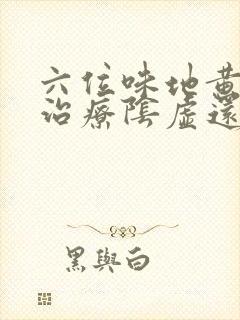 六位味地黄
治療陰虛還
黑與白